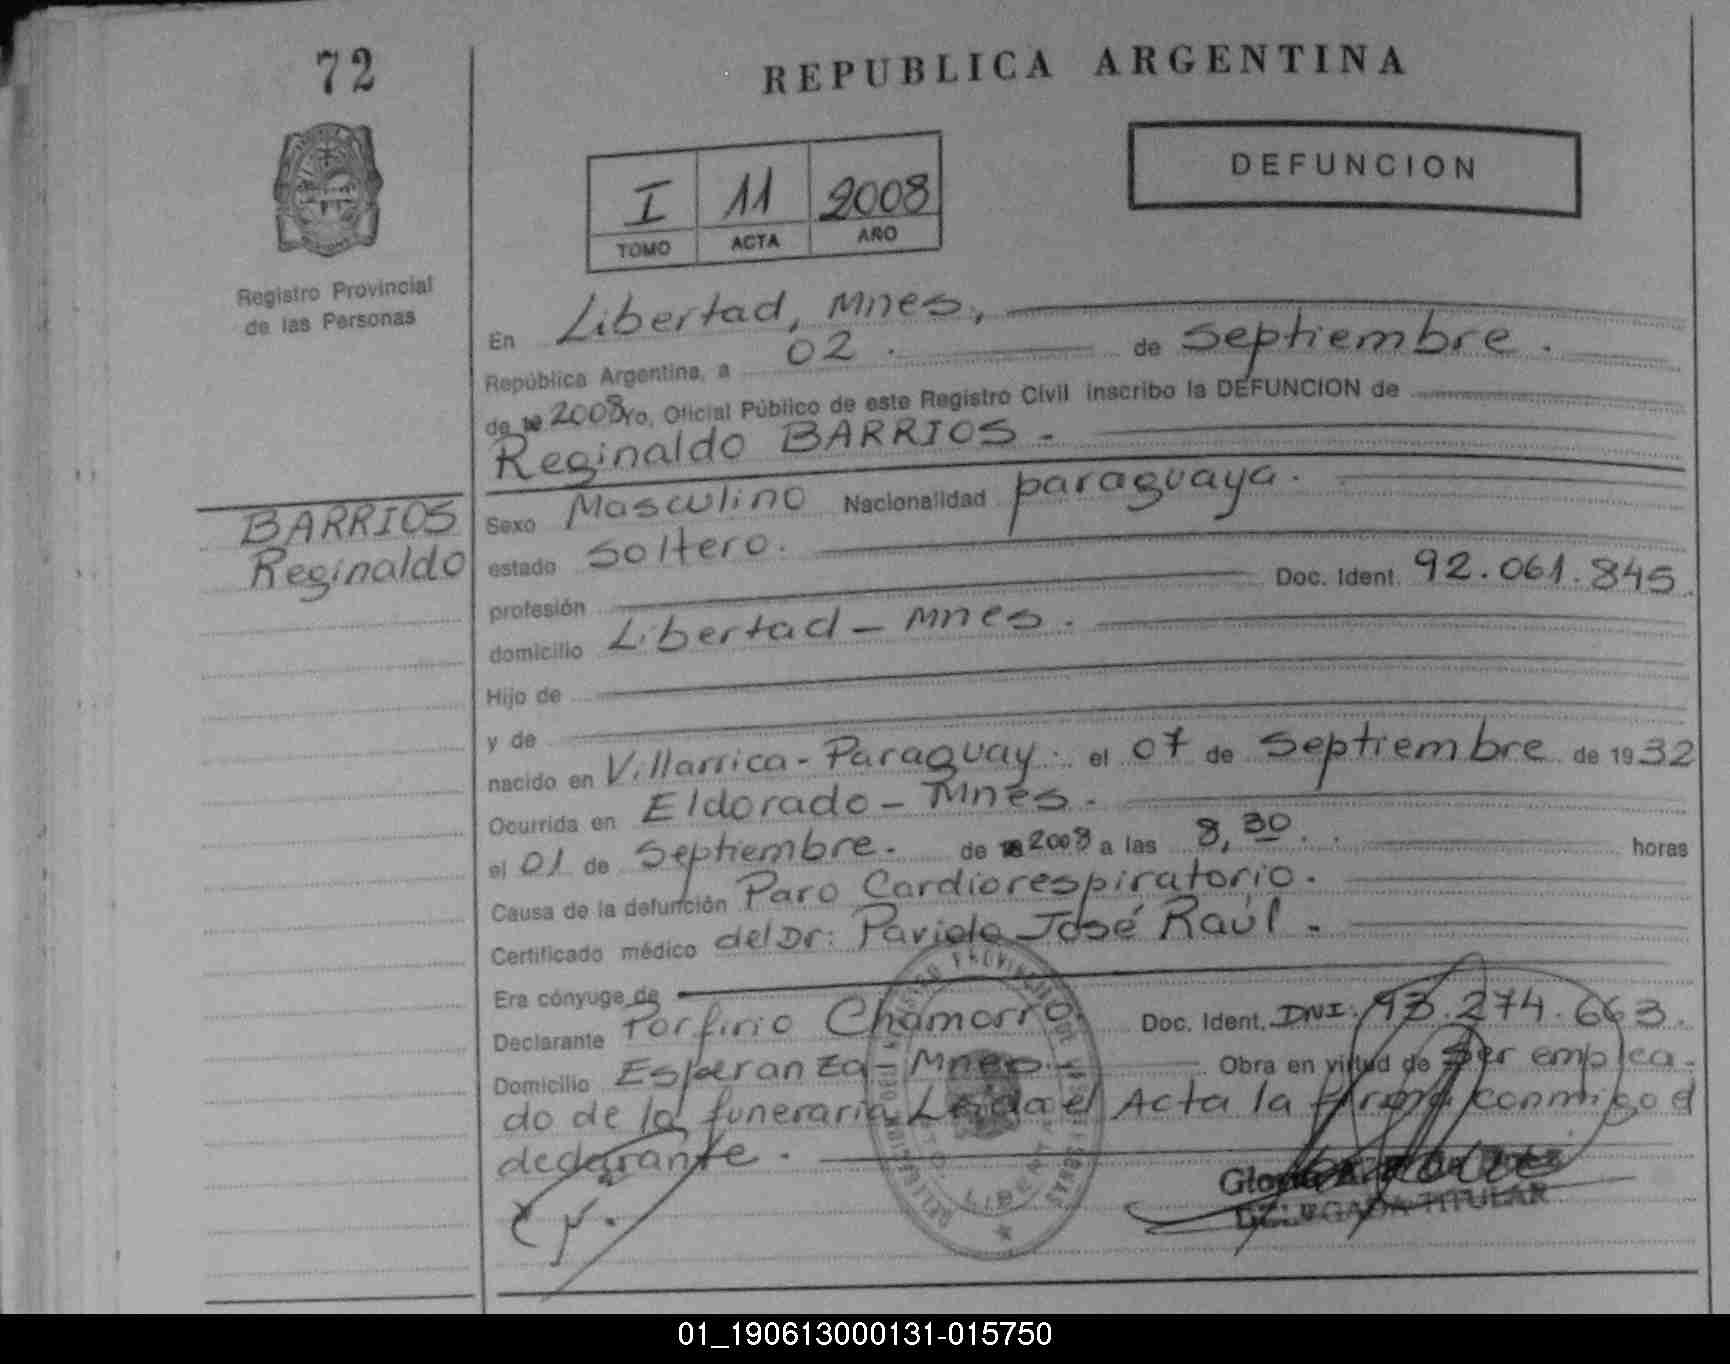 72
REPUBLICA ARGENTINA
DEFUNCION
I 11 2008
TOMO ACTA AÑO
Registro Provincial
de las Personas
En Libertad, Mnes,
República Argentina, a 02. de Septiembre.
de 19 2008 Yo, Oficial Público de este Registro Civil inscribo la DEFUNCION de
Reginaldo BARRIOS.-
BARRIOS
Reginaldo
Sexo Masculino Nacionalidad paraguaya.
estado Soltero.
profesión Doc. Ident. 92.061.845.
domicilio Libertad - Mnes.
Hijo de
y de
nacido en Villarrica - Paraguay. el 07 de Septiembre de 1932
Ocurrida en Eldorado - Mnes.
el 01 de Septiembre. de 19 2008 a las 8,30. horas
Causa de la defunción Paro Cardiorespiratorio.
Certificado médico del Dr: José Raúl.
Era cónyuge de
Declarante Porfirio Chamorro. Doc. Ident. DNI. 93.274.663.
Domicilio Esperanza - Mnes. Obra en virtud de Ser emplea-
do de la funeraria. Leida el Acta la firma conmigo el
declarante.
DELEGADA TITULAR
01_190613000131-015750